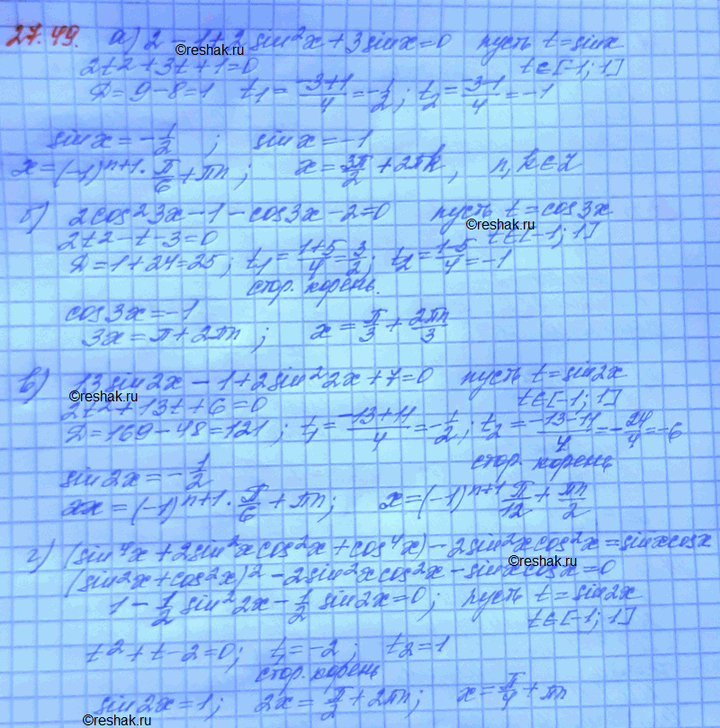 27.49. а) 2 - 1 + 2 sin²x + 3 sinx = 0 пусть t = sinx
2t² + 3t + 1 = 0 t ∈ [-1; 1]
D = 9 - 8 = 1 t₁ = (-3+1)/4 = -1/2; t₂ = (-3-1)/4 = -1
sinx = -1/2 ; sinx = -1
x = (-1)ⁿ⁺¹ · π/6 + πn ; x = 3π/2 + 2πk, n, k ∈ Z
б) 2cos²3x - 1 - cos3x - 2 = 0 пусть t = cos3x
2t² - t - 3 = 0 t ∈ [-1; 1]
D = 1 + 24 = 25 ; t₁ = (1+5)/4 = 3/2; t₂ = (1-5)/4 = -1
стор. корень.
cos3x = -1
3x = π + 2πn ; x = π/3 + 2πn/3
в) 13 sin2x - 1 + 2sin²2x + 7 = 0 пусть t = sin2x
2t² + 13t + 6 = 0 t ∈ [-1; 1]
D = 169 - 48 = 121 ; t₁ = (-13+11)/4 = -1/2 ; t₂ = (-13-11)/4 = -24/4 = -6
стор. корень
sin2x = -1/2
2x = (-1)ⁿ⁺¹ · π/6 + πn ; x = (-1)ⁿ⁺¹ π/12 + πn/2
г) (sin⁴x + 2sin²x cos²x + cos⁴x) - 2sin²x cos²x = sinx cosx
(sin²x + cos²x)² - 2sin²x cos²x - sinx cosx = 0
1 - 1/2 sin²2x - 1/2 sin2x = 0 ; пусть t = sin2x
t ∈ [-1; 1]
t² + t - 2 = 0; t₁ = -2 ; t₂ = 1
стор. корень
sin2x = 1; 2x = π/2 + 2πn; x = π/4 + πn
©reshak.ru
©reshak.ru
©reshak.ru
©reshak.ru
©reshak.ru
©reshak.ru